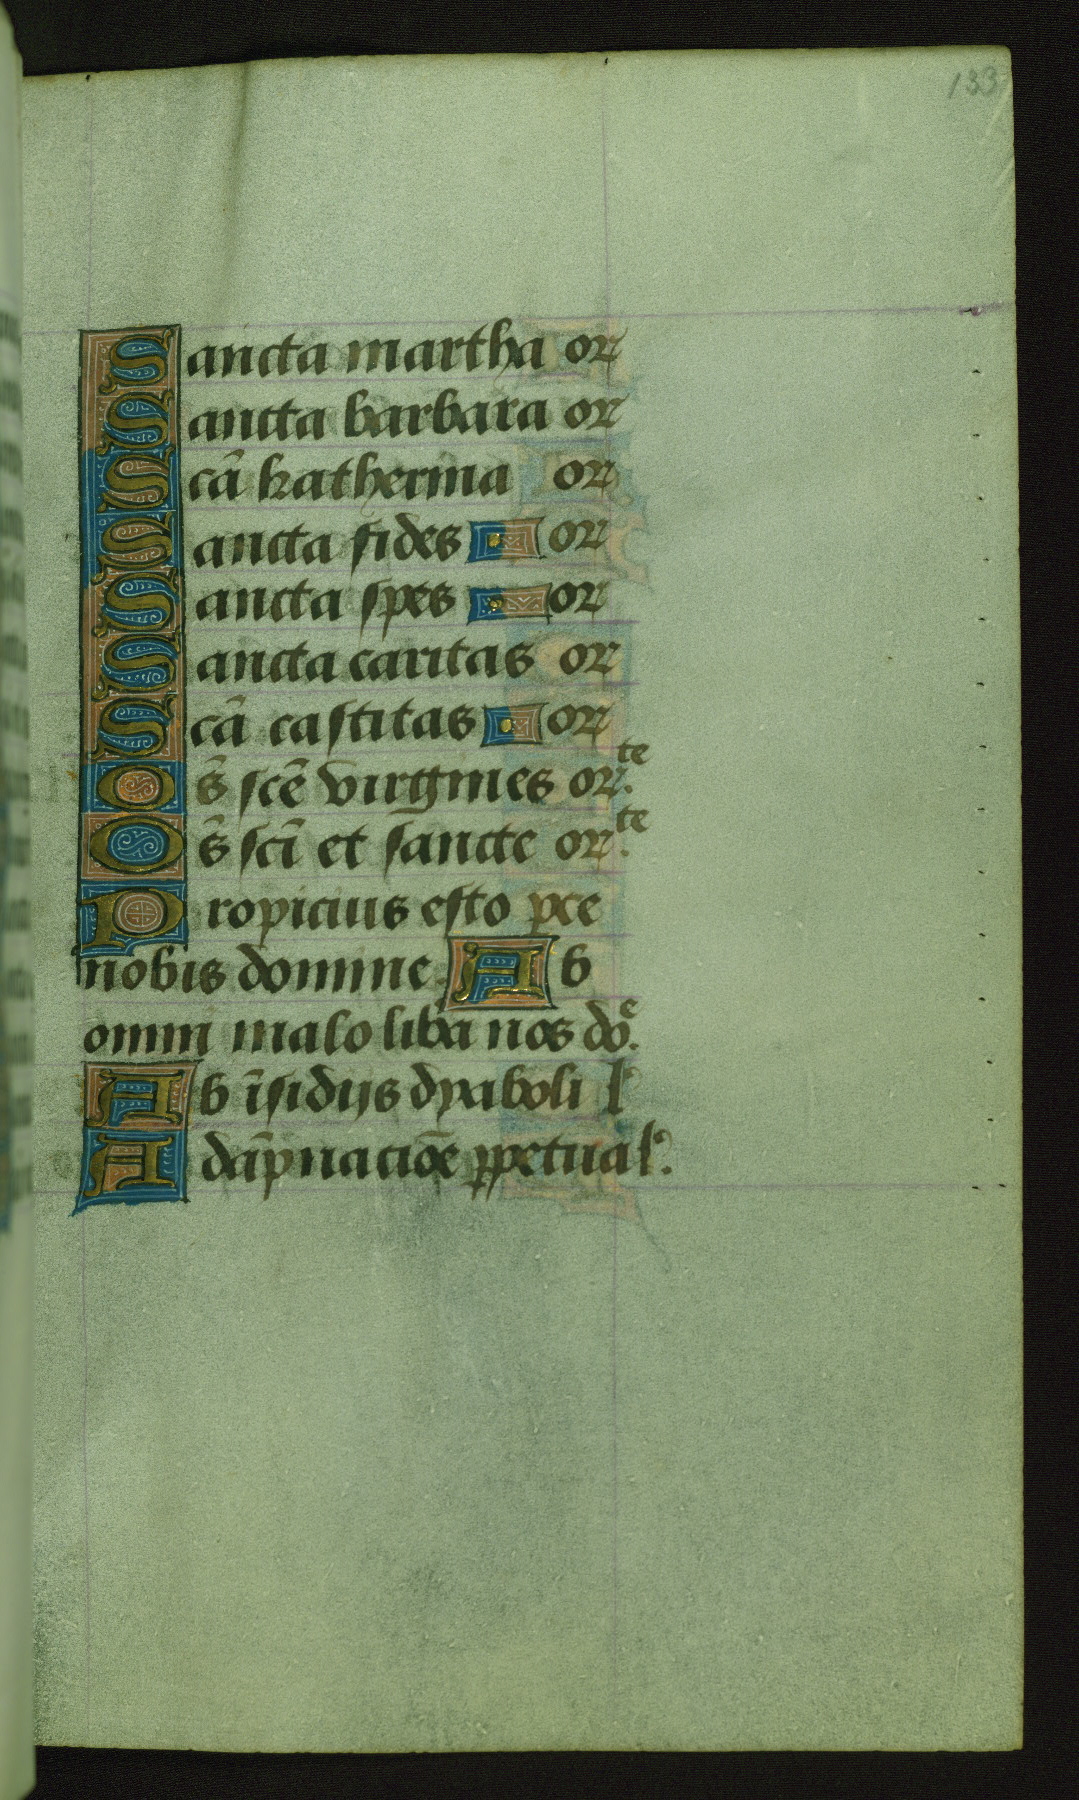 133
Sancta martha or
Sancta barbara or
Scā katherina or
Sancta fides or
Sancta spes or
Sancta caritas or
Scā castitas or
Os̄ scē virgines orte.
Os̄ scī et sancte orte.
Propicius esto pce
nobis domine. Ab
omni malo liba nos doe.
Ab īsidijs dyaboli l
A dāpnacioē ppetua l.